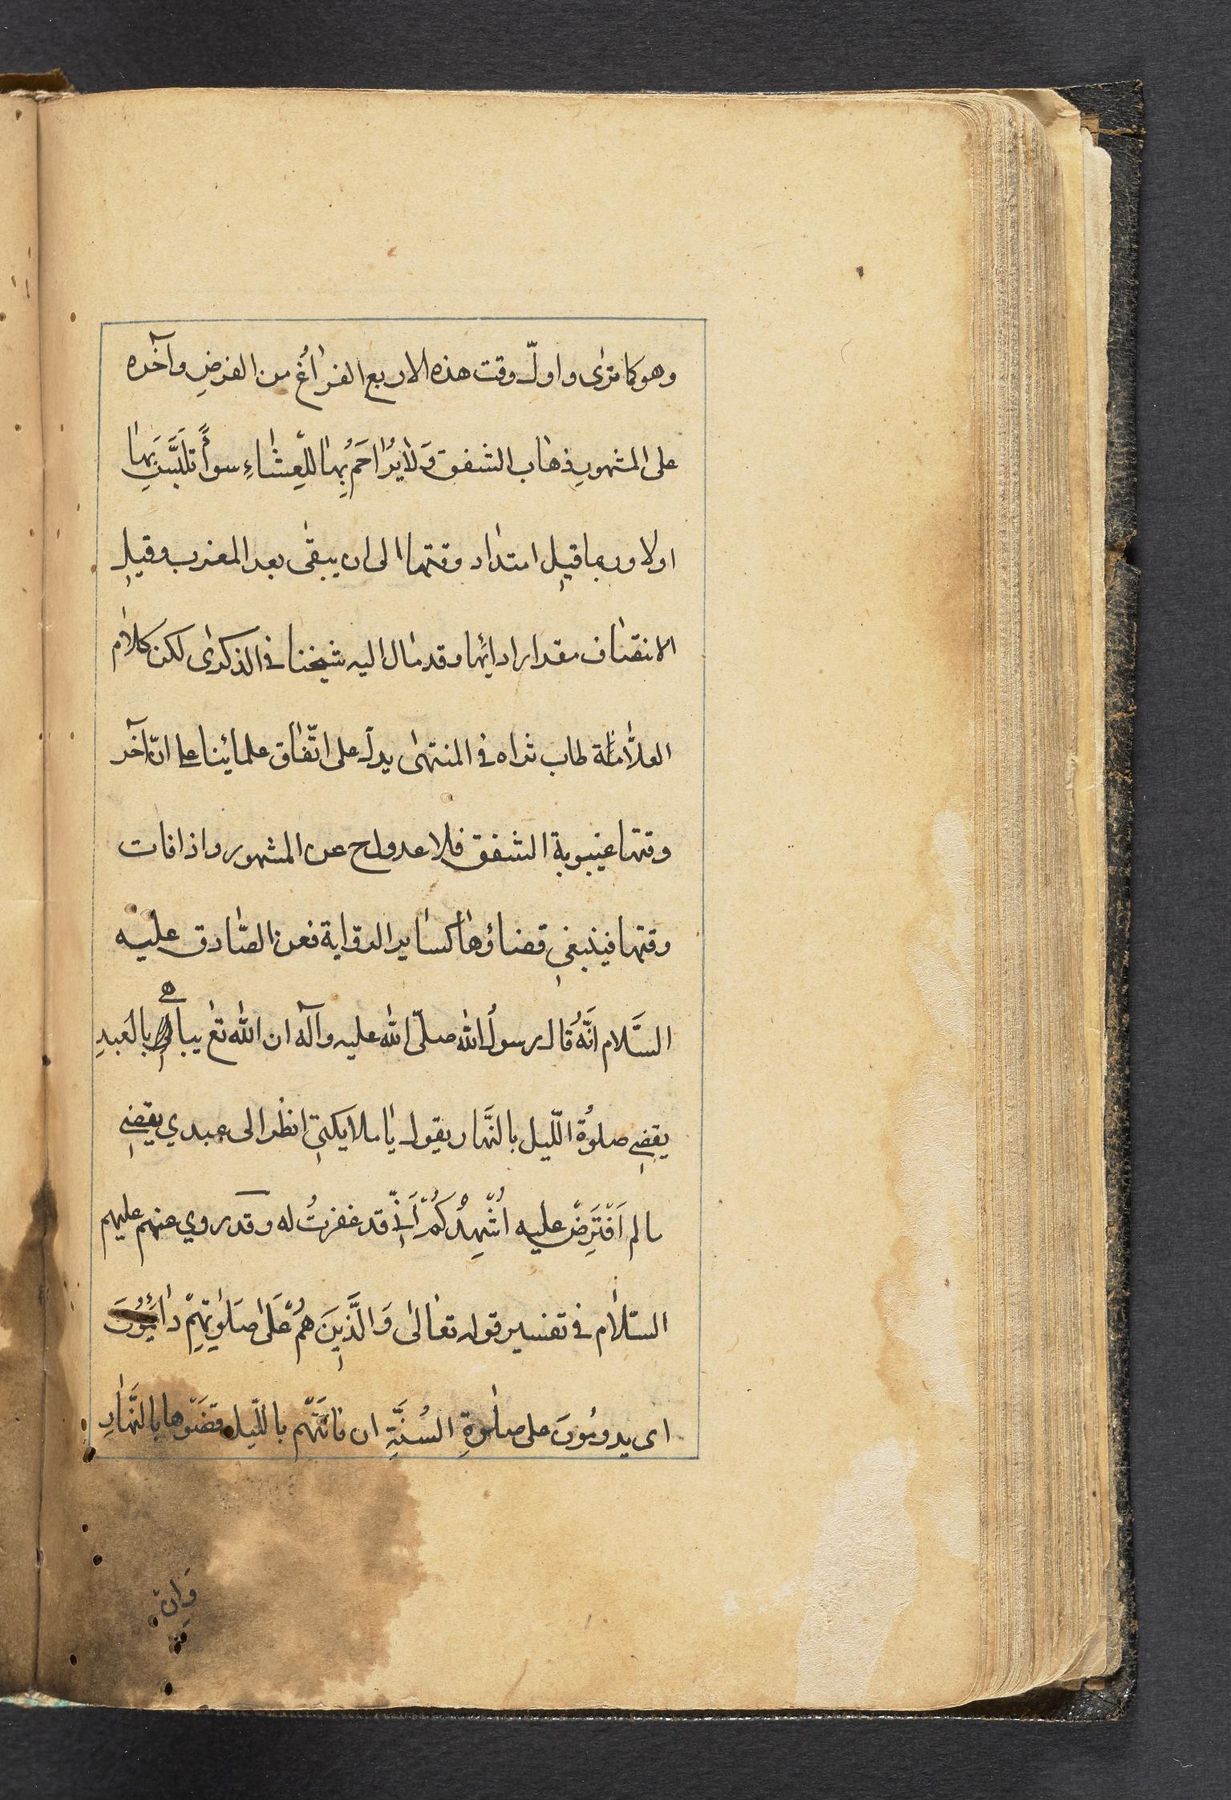 وهو كما ترى واول وقت هذه الاربع الفراغ من الفرض وآخره
على المشهور ذهاب الشفق وَلا يُزاحَمُ بِها لِلعِشاءِ سوآءً تلبَّسَ بِها
اولا وربما قيل امتداد وقتها الى ان يبقى بعد المغرب وقيل
الانتصاف مقدار ادائها وقد مال اليه شيخنا في الذكرى لكن كلام
العلّامة طاب ثراه في المنتهى يدل على اتّفاق علمائنا على انّ آخر
وقتها غيبوبة الشفق فلا عدول ح عن المشهور واذا فات
وقتها فينبغي قضاؤها كساير الرواية فعن الصّادق عليه
السَّلام انَّهُ قال رسولُ الله صلّى الله عليه وآله ان الله تع يباهي بالعبدِ
يقضي صلوةُ اللّيل بالنَّهار يقول يا ملايكتي انظرا الى عبدي يقضي
مالم اَفْتَرِضْ عليه اُشْهِدُكُمْ اَنّي قد غفرتُ له وقد روي عنهم عليهم
السّلام في تفسير قوله تعالى وَالَّذِينَ هُمْ عَلى صَلوٰتِهِمْ دائِمُونَ
اى يدومُونَ على صلوةِ السُنَّةِ ان فاتَتْهُم باللّيل قضَوْها بالنَّهارِ
وَان